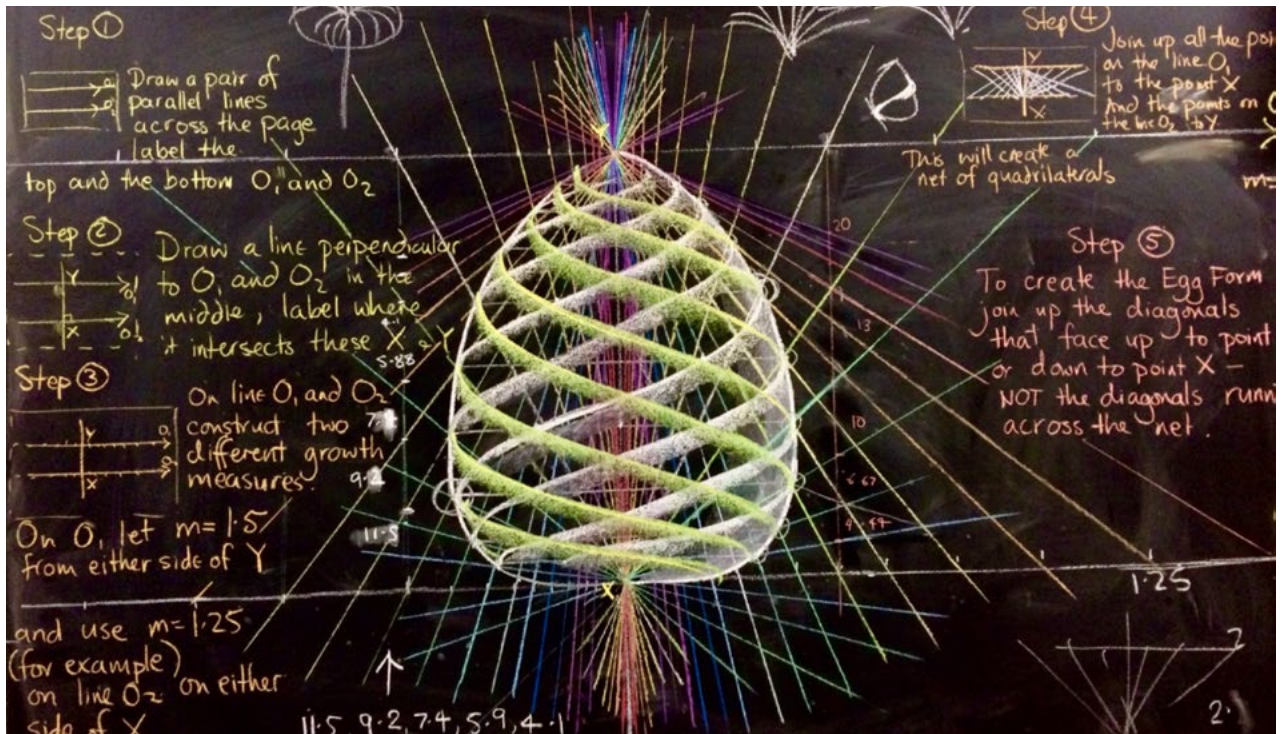 Step ①
Draw a pair of
parallel lines
across the page
label the
top and the bottom O₁ and O₂
Step ②
Draw a line perpendicular
to O₁ and O₂ in the
middle, label where
it intersects these X & Y
Y
X
Step ③
On line O₁ and O₂
construct two
different growth
measures.
Y
X
On O₁ let m= 1.5
from either side of Y
and use m=1.25
(for example)
on line O₂ on either
side of X
5.88
9.2
11.5
11.5, 9.2, 7.4, 5.9, 4.1
Y
X
20
13
10
6.67
Step ④
Y
X
Join up all the poi
on the line O₁
to the point X
And the points on
the line O₂ to Y
This will create a
net of quadrilaterals
m=
Step ⑤
To create the Egg Form
join up the diagonals
that face up to point
or down to point X –
NOT the diagonals runn
across the net.
1.25